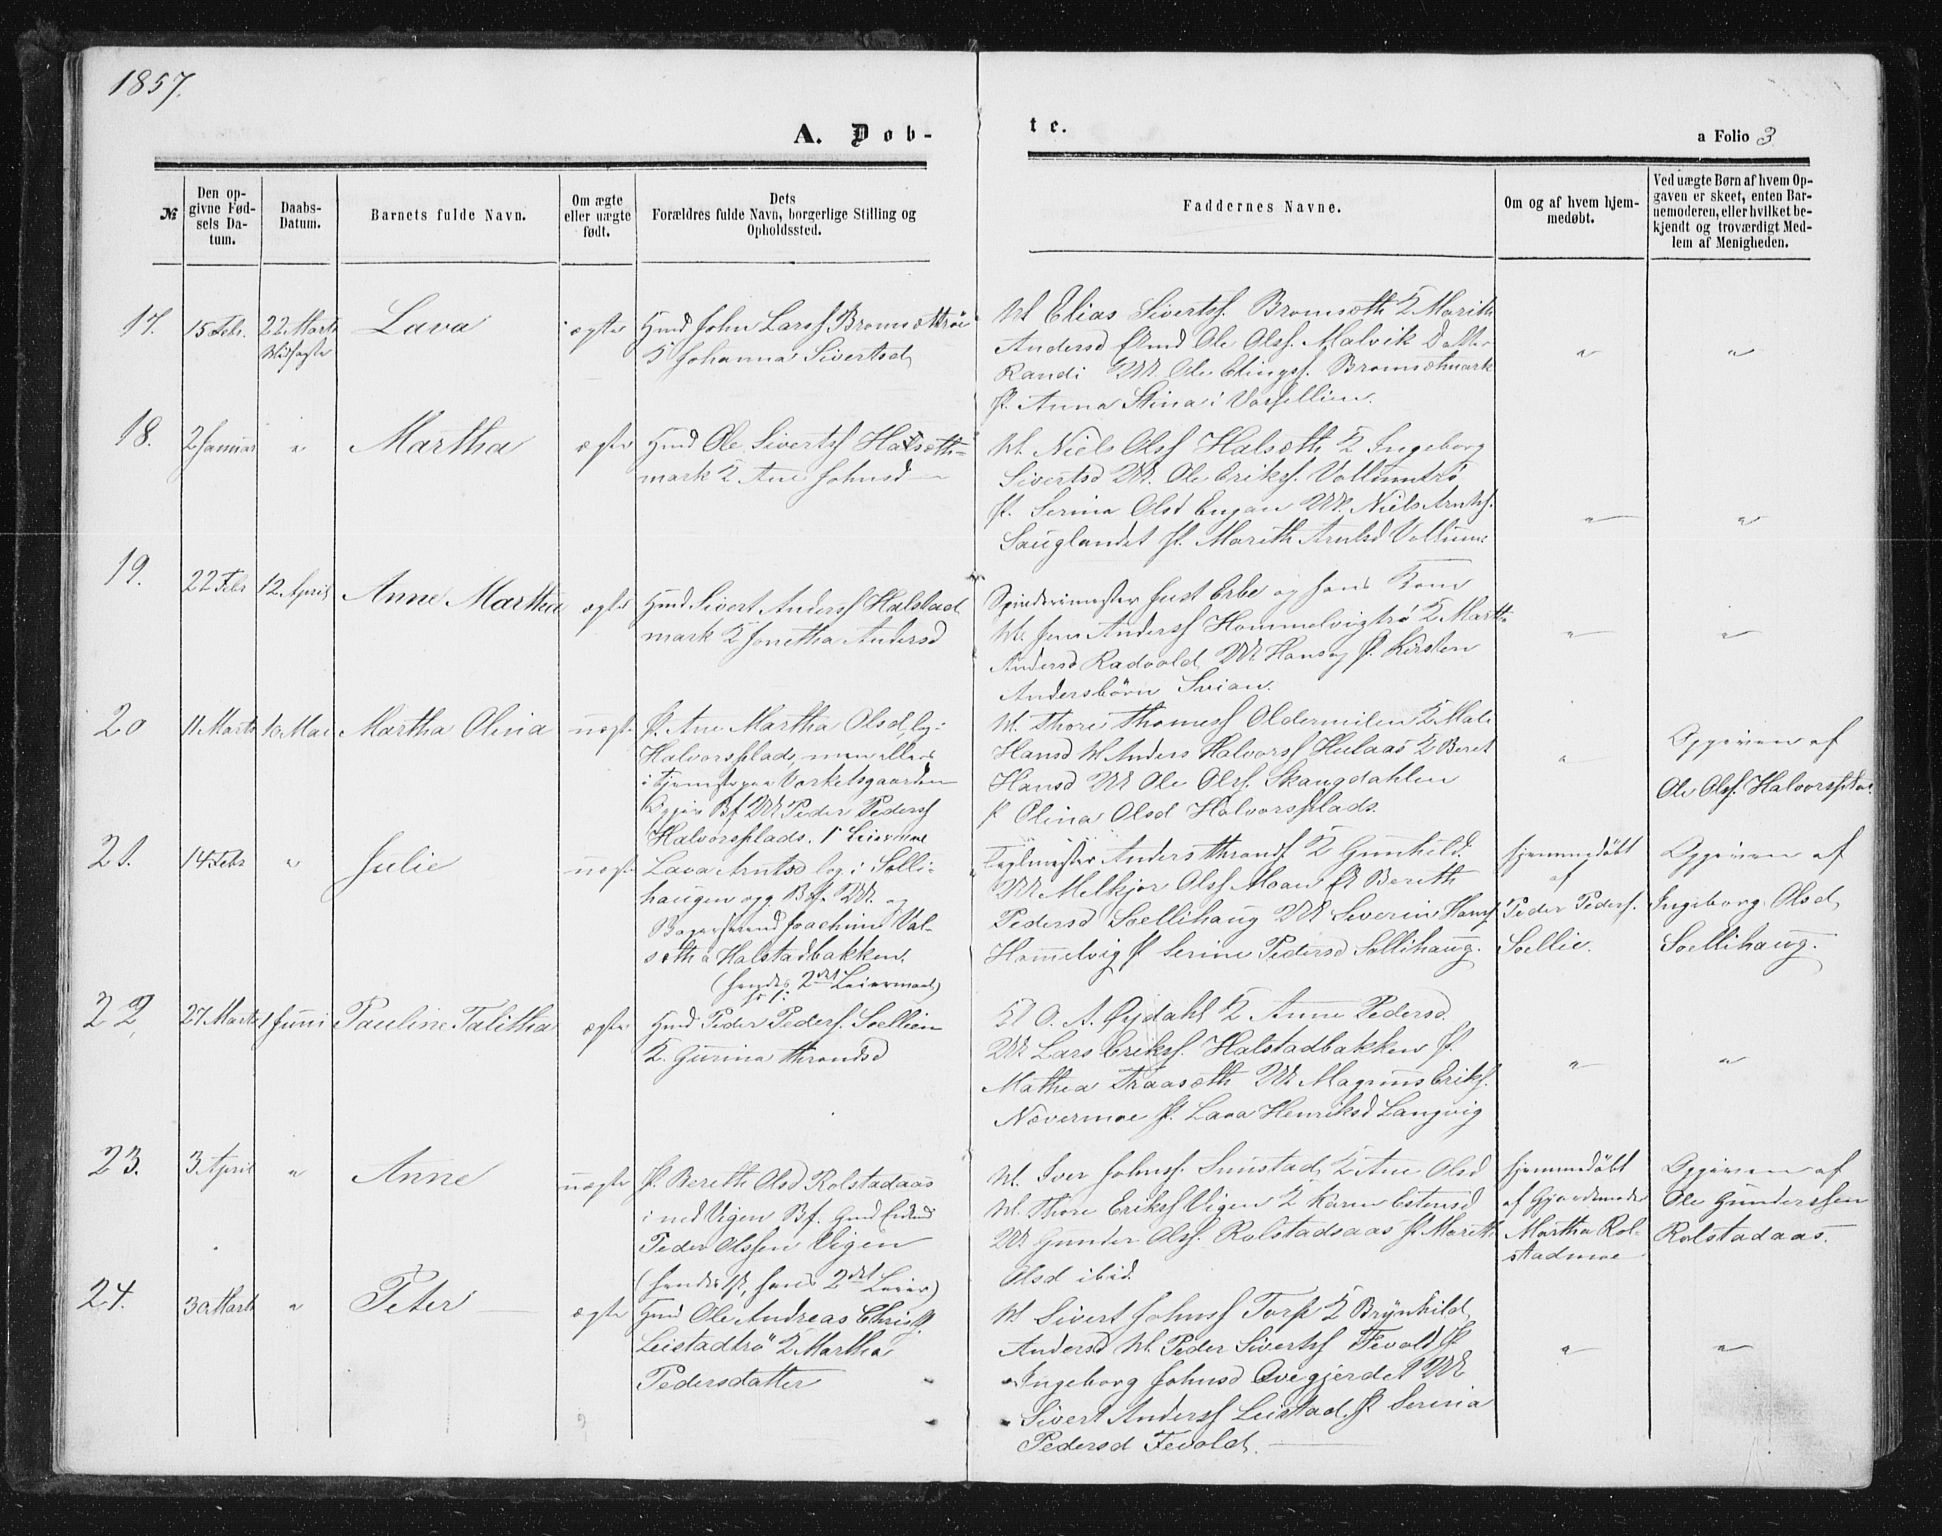 1857.
A. Dob-
te.
a Folio 3
№
Den op-
givne Fød-
sels Da-
tum.
Daabs-
Datum.
Barnets fulde Navn.
Om ægte
eller uægte
født.
Dets
Forældres fulde Navn, borgerlige Stilling og
Opholdssted.
Faddernes Navne.
Om og af hvem hjem-
medøbt.
Ved uægte Børn af hvem Op-
gaven er skeet, enten Bar-
nemoderen, eller hvilket be-
kjendt og troværdigt Med-
lem af Menigheden.
17.
15 Febr.
22 Marts
Lava
ægte
Hmd John Larss Bromsettrøe
K Johanna Sivertsd
M Elias Sivertss. Bromsæth K Marith
Andersd Enmd Ole Olss. Malvik Datter
Randi UM Ole Elingss. Bromsetmark
P. Anna Stina i
"
"
18.
2 Januar
"
Martha
ægte
Hmd Ole Sivertss Halsæth=
mark K Ane Johnsd —
M. Niels Olss Halsæth K Ingeborg
Sivertsd UM. Ole Erikss. Vollumtrø
P. Serina Olsd Engan UM. Niels Arntss.
Sauglandet P. Marith Arntsd Vollum
"
"
19.
22 Febr
12 April
Anne Martha
ægte
Hmd Sivert Anderss Halstad
mark K Jonetha Andersd
Spinderimester Just Erbe og hans Kone
M. Jens Anderss Hommelvigtrø K Marth
Andersd Radvold UM Hans og P. Kirsten
Andersbörn Svian.
"
"
20
11 Marts
10 Mai
Martha Olina
uægte
P. Ane Martha Olsd log i
Halvorsplads, men ellers
i tjeneste paa Værketsgaarden
Opgiv. Bf. UM Peder Pederss
Halvorsplads. 1 Leiermaal
M. Thore Thomess Oldermilen K Mali
Hansd M. Anders Halvorss Hulaas K Beret
Hansd UM Ole Olss. Skaugdahlen
P Olina Olsd Halvorsplads.
"
Opgiven af
Ole Olss. Halvorsplads.
21.
14 Febr
"
Julie
uægte
Lava Arntsd log i Solli-
haugen opg Bf. UM. og
Bagersvend Joachim Val-
seth a Halstadbakken.
(hendes 2det Leiermaal)
hs 1.
Teglmester Anders Thronds K Gunhild.
UM Melkjor Olss Moan P Bereth
Pedersd Soellihaug UM Severin Hanss
Hommelvig P Serine Pedersd Sollihaug.
Hjemmedøbt
af
Peder Pederss.
Soellie.
Opgiven af
Ingeborg Olsd
Soellihaug.
22,
27 Marts
1 Juni
Pauline Talitha
ægte
Hmd Peder Pederss. Soellien
K. Gurina Throndsd
O. A. Øydahl K Anne Pedersd.
UM Lars Erikss. Halstadbakken P.
Mathea Traasæth UM Magnus Erikss.
Nævermoe P. Lava Henriksd Langvig
"
"
23.
3 April
"
Anne
uægte
P. Bereth Olsd Rolstadaas
i ned Vigen Bf. Gmd Enkem
Peder Olssen Vigen
(hendes 1st, hans 2det Leier)
M. Iver Johnss. Smistad K Ane Olsd
M. Thore Erikss Vigen K Karen Estensd
UM Gunder Olss. Rolstadsaas P Mareth
Olsd ibid.
Hjemmedøbt
af Gjordemoder
Martha Rol-
stadmoe
Opgiven af
Ole Gunderssen
Rolstadaas.
24.
30 Marts
"
Peter
ægte
Hmd Ole Andreas Christ.
Leistadtrø K Martha
Pedersdatter
M Sivert Johnss Torp K Brynhild
Andersd M. Peder Sivertss Fevold P
Ingeborg Johnsd Øvegjerdet UM
Sivert Anderss Leistad P Serina
Pedersd Fevold. —
"
"